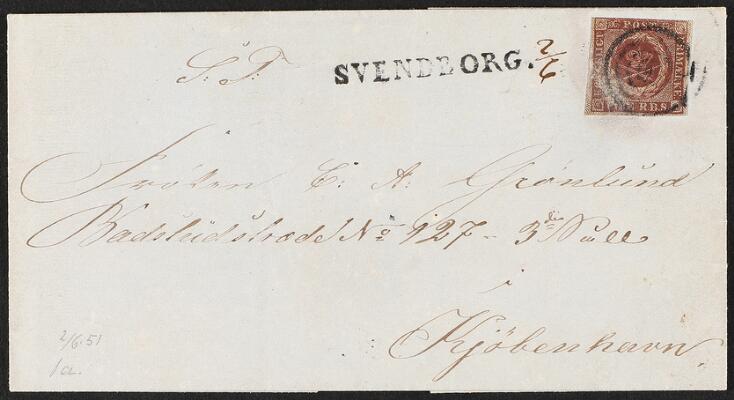 S: T:
SVENDBORG. 2/6
KGL POST FRIMÆRKE
R.B.S.
Frøken C: A: Grönlund
Badstüdstræde No 127 - 3die
i
Kjöbenhavn
2/6.51
1a.